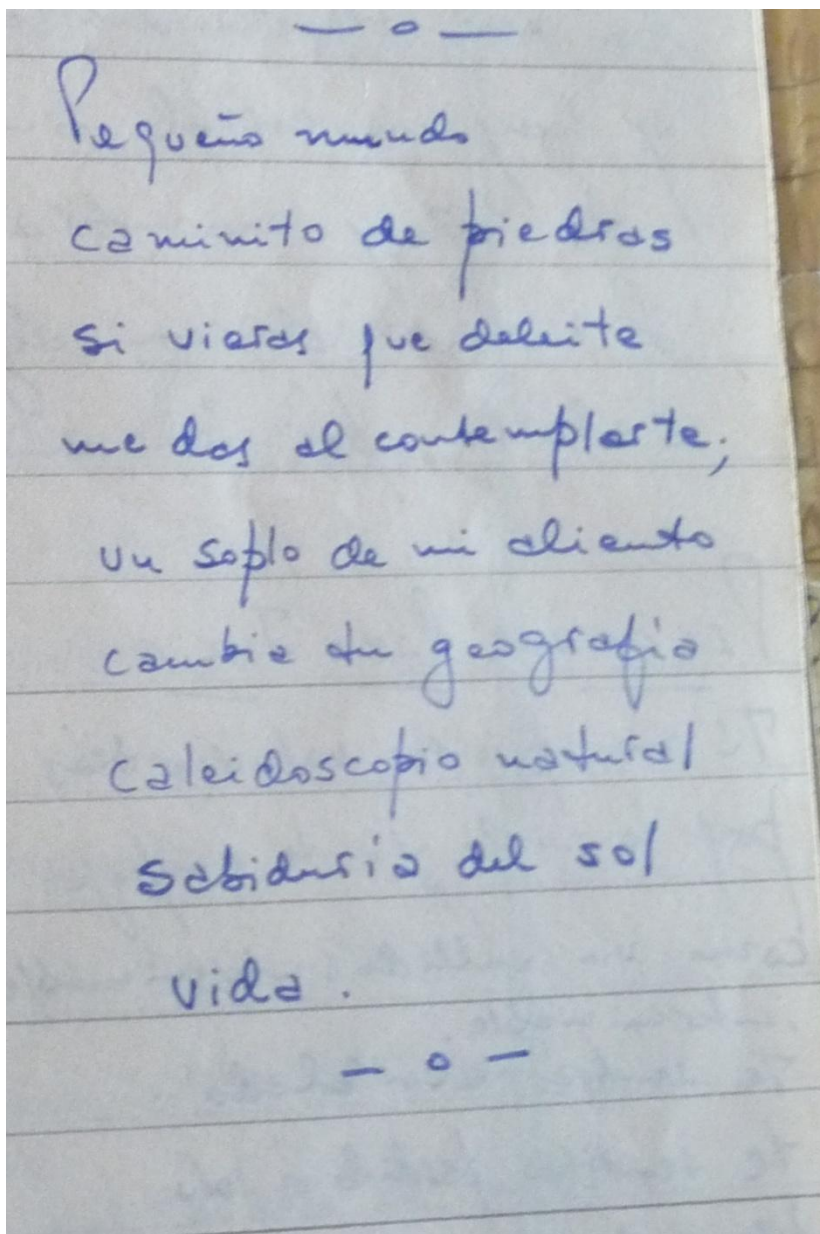 — o —
Pequeño mundo
caminito de piedras
si vieras que deleite
me das al contemplarte;
un soplo de mi aliento
cambia tu geografia
caleidoscopio natural
sabiduria del sol
vida.
— o —